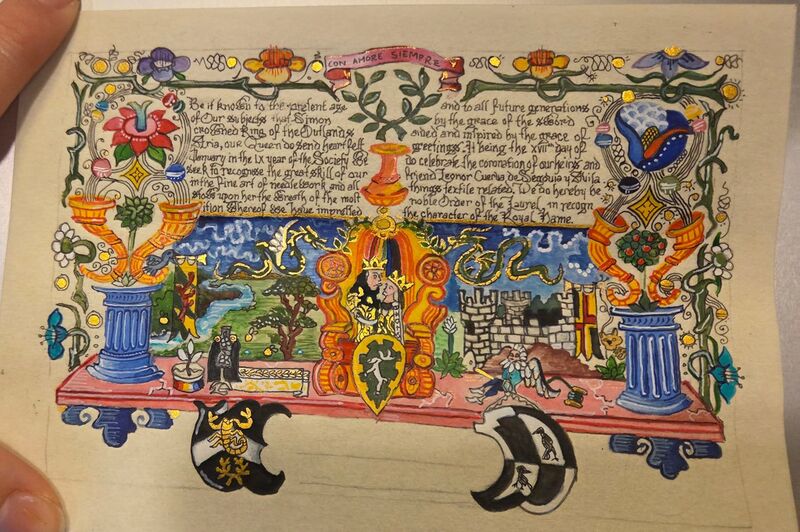 CON AMORE SIEMPRE
Be it known to the age and to all future generations
of Our subjects that Simon by the grace of the
crowned King of the Outlands aided and inpired by the grace of
our Queen do send heartfelt greetings. It being the day of
January in the LX year of the Society We do celebrate the coronation of our heirs and
seek to recognise the great skill of our friend Leonor Cuerva de Segovia y Avila
in the Fine art of needlework and all things textile related. We do hereby be
stows upon her the Wreath of the most noble Order of the Laurel, in recogn
ition Whereof we have impressed the character of the Royal Name.